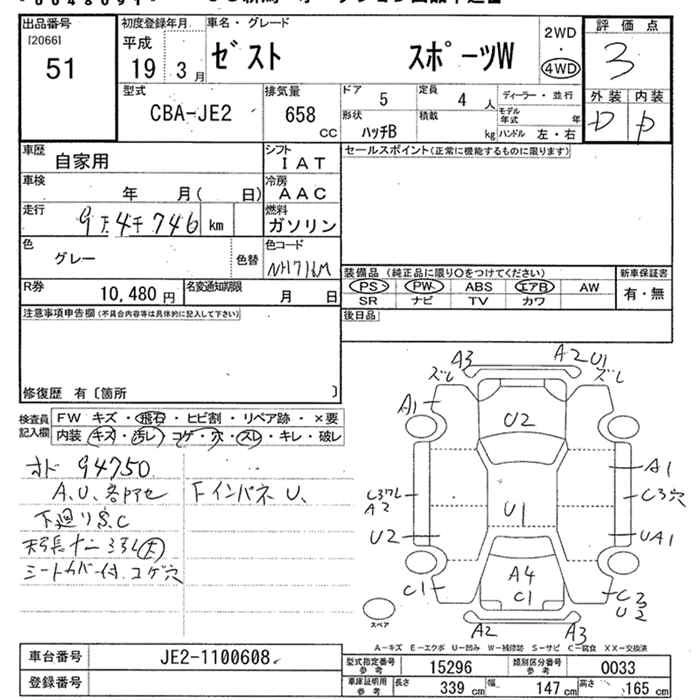 出品番号
[2066]
51
初度登録年月
平成
19年3月
車名・グレード
ゼスト スポーツW
2WD
・
4WD
評価点
3
外装 内装
D D
型式
CBA-JE2
排気量
658
CC
ドア 5
定員 4 人
ディーラー・並行
形状 ハッチB
積載 kg
モデル年式 年
ハンドル 左・右
車歴
自家用
シフト
IAT
セールスポイント(正常に機能するものに限ります)
車検
年 月( 日)
冷房
AAC
走行
9万4千746 km
燃料
ガソリン
色
グレー
色替
色コード
NH718M
R券
10,480 円
名変通知期限
月 日
装備品(純正品に限り○をつけてください)
新車保証書
PS PW ABS エアB AW
SR ナビ TV カワ
有・無
注意事項申告欄(不具合内容等は具体的に記入して下さい)
後日品
修復歴 有〔箇所 〕
検査員記入欄
FW キズ・飛石・ヒビ割・リペア跡・×要
内装 キズ・汚レ・コゲ・穴・スレ・キレ・破レ
オド 94750
A、U、各所アセ
下廻りS.C
シートカバー付.コゲ穴
Fインパネ U、
A3
ズレ
A2 U1
ズレ
A1
U2
A1
C3ワレ
A2
C3穴
U1
U2
UA1
A4
C1
C1
C2
U2
A2
A3
スペア
A-キズ E-エクボ U-凹み W-補修跡 S-サビ C-腐食 XX-交換済
車台番号
JE2-1100608
登録番号
型式指定番号 参考
15296
類別区分番号 参考
0033
車庫証明用 参考
長さ 339 cm
幅 147 cm
高さ 165 cm